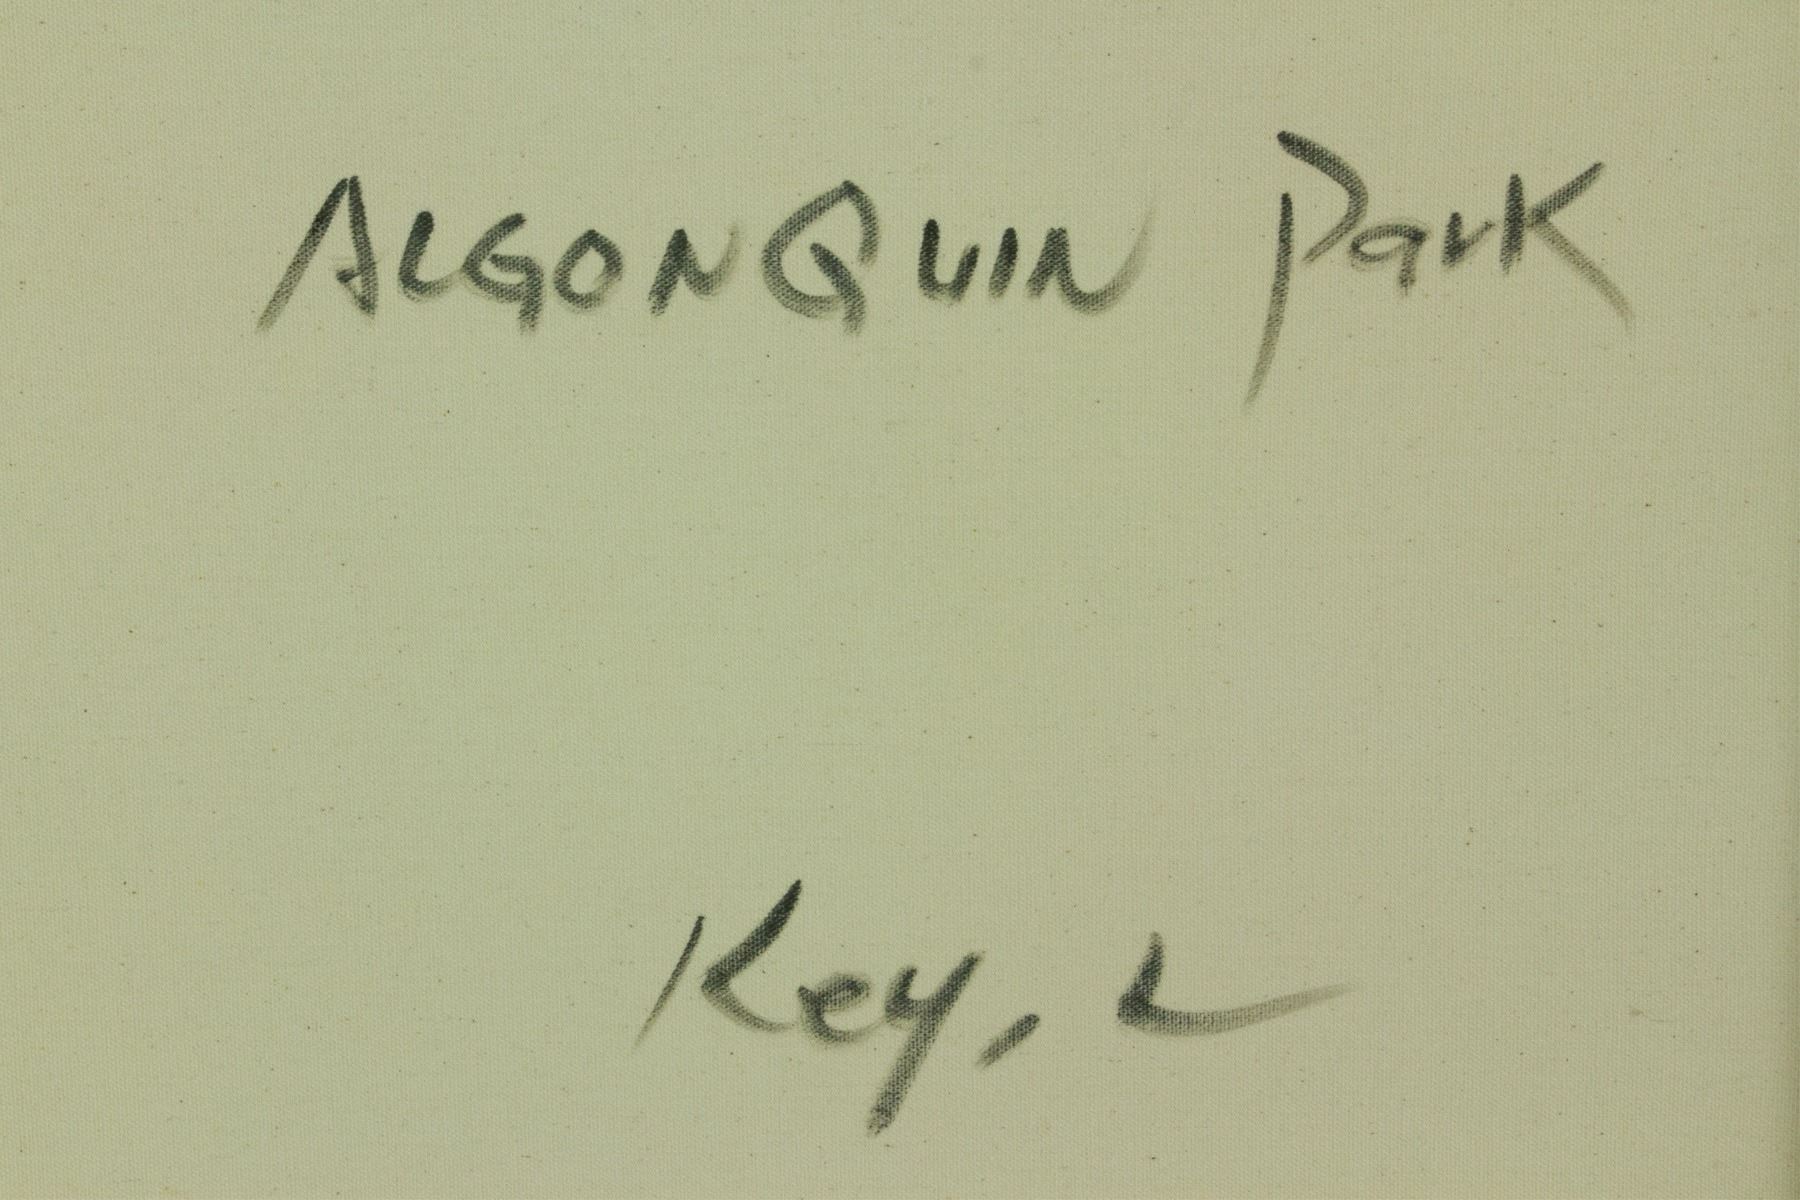 ALGONQUIN Park
Key, L